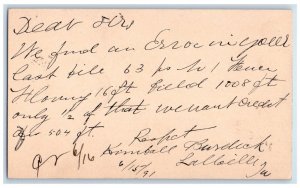 Dear Sirs
We find an Error in your
last bill 63 ps No 1 Fence
Flooring 16 ft held 1008 ft
only 1/2 of that & we want Credit
for 504 ft.
Respct
Kimball Burdick
6/16 6/15/91 LaBelle